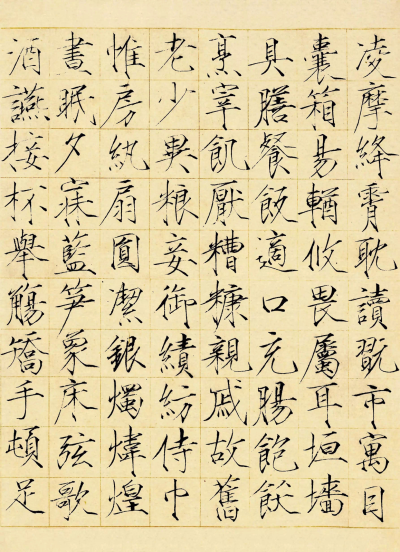 凌摩絳霄耽讀翫市寓目
囊箱易輶攸畏屬耳垣墻
具膳餐飯適口充腸飽飫
烹宰飢厭糟糠親戚故舊
老少異粮妾御績紡侍巾
惟房紈扇圓潔銀燭煒煌
晝眠夕寐藍笋象床弦歌
酒讌接杯舉觴矯手頓足